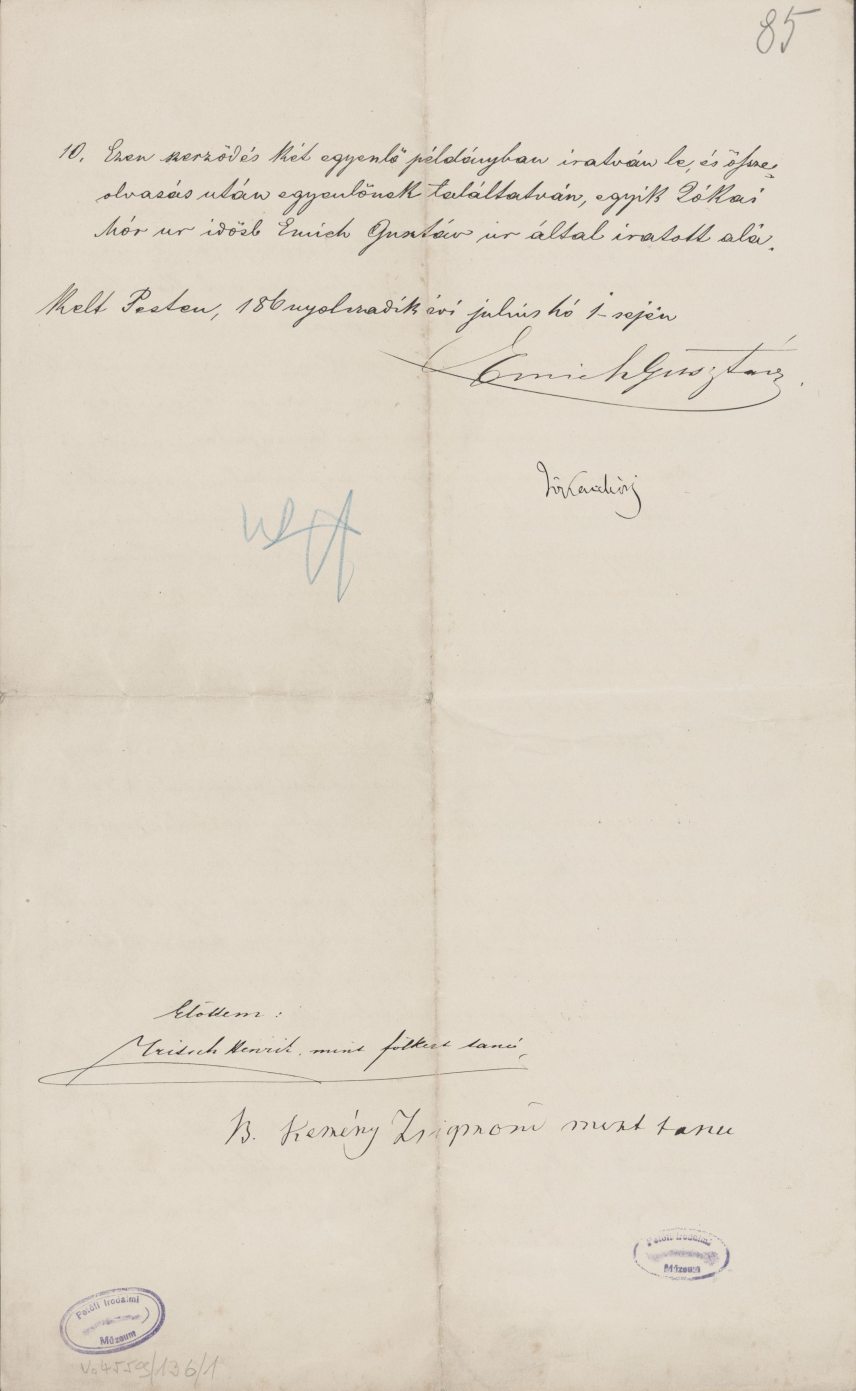 85
10. Ezen szerzödés két egyenlő példányban iratván le, és össze-
olvasás után egyenlőnek találtatván, egyik Jókai
Mór ur idősb Emich Gusztáv ur által iratott alá.
Kelt Pesten, 186nyolczadik évi julius hó 1-sején
Emich Gusztáv.
Jókai Mór
Előttem:
Henrik, mint fölkért tanú,
B. Kemény Zsigmond mint tanu
Petőfi Irodalmi
Múzeum
Petőfi Irodalmi
Múzeum
V. 4559/136/1